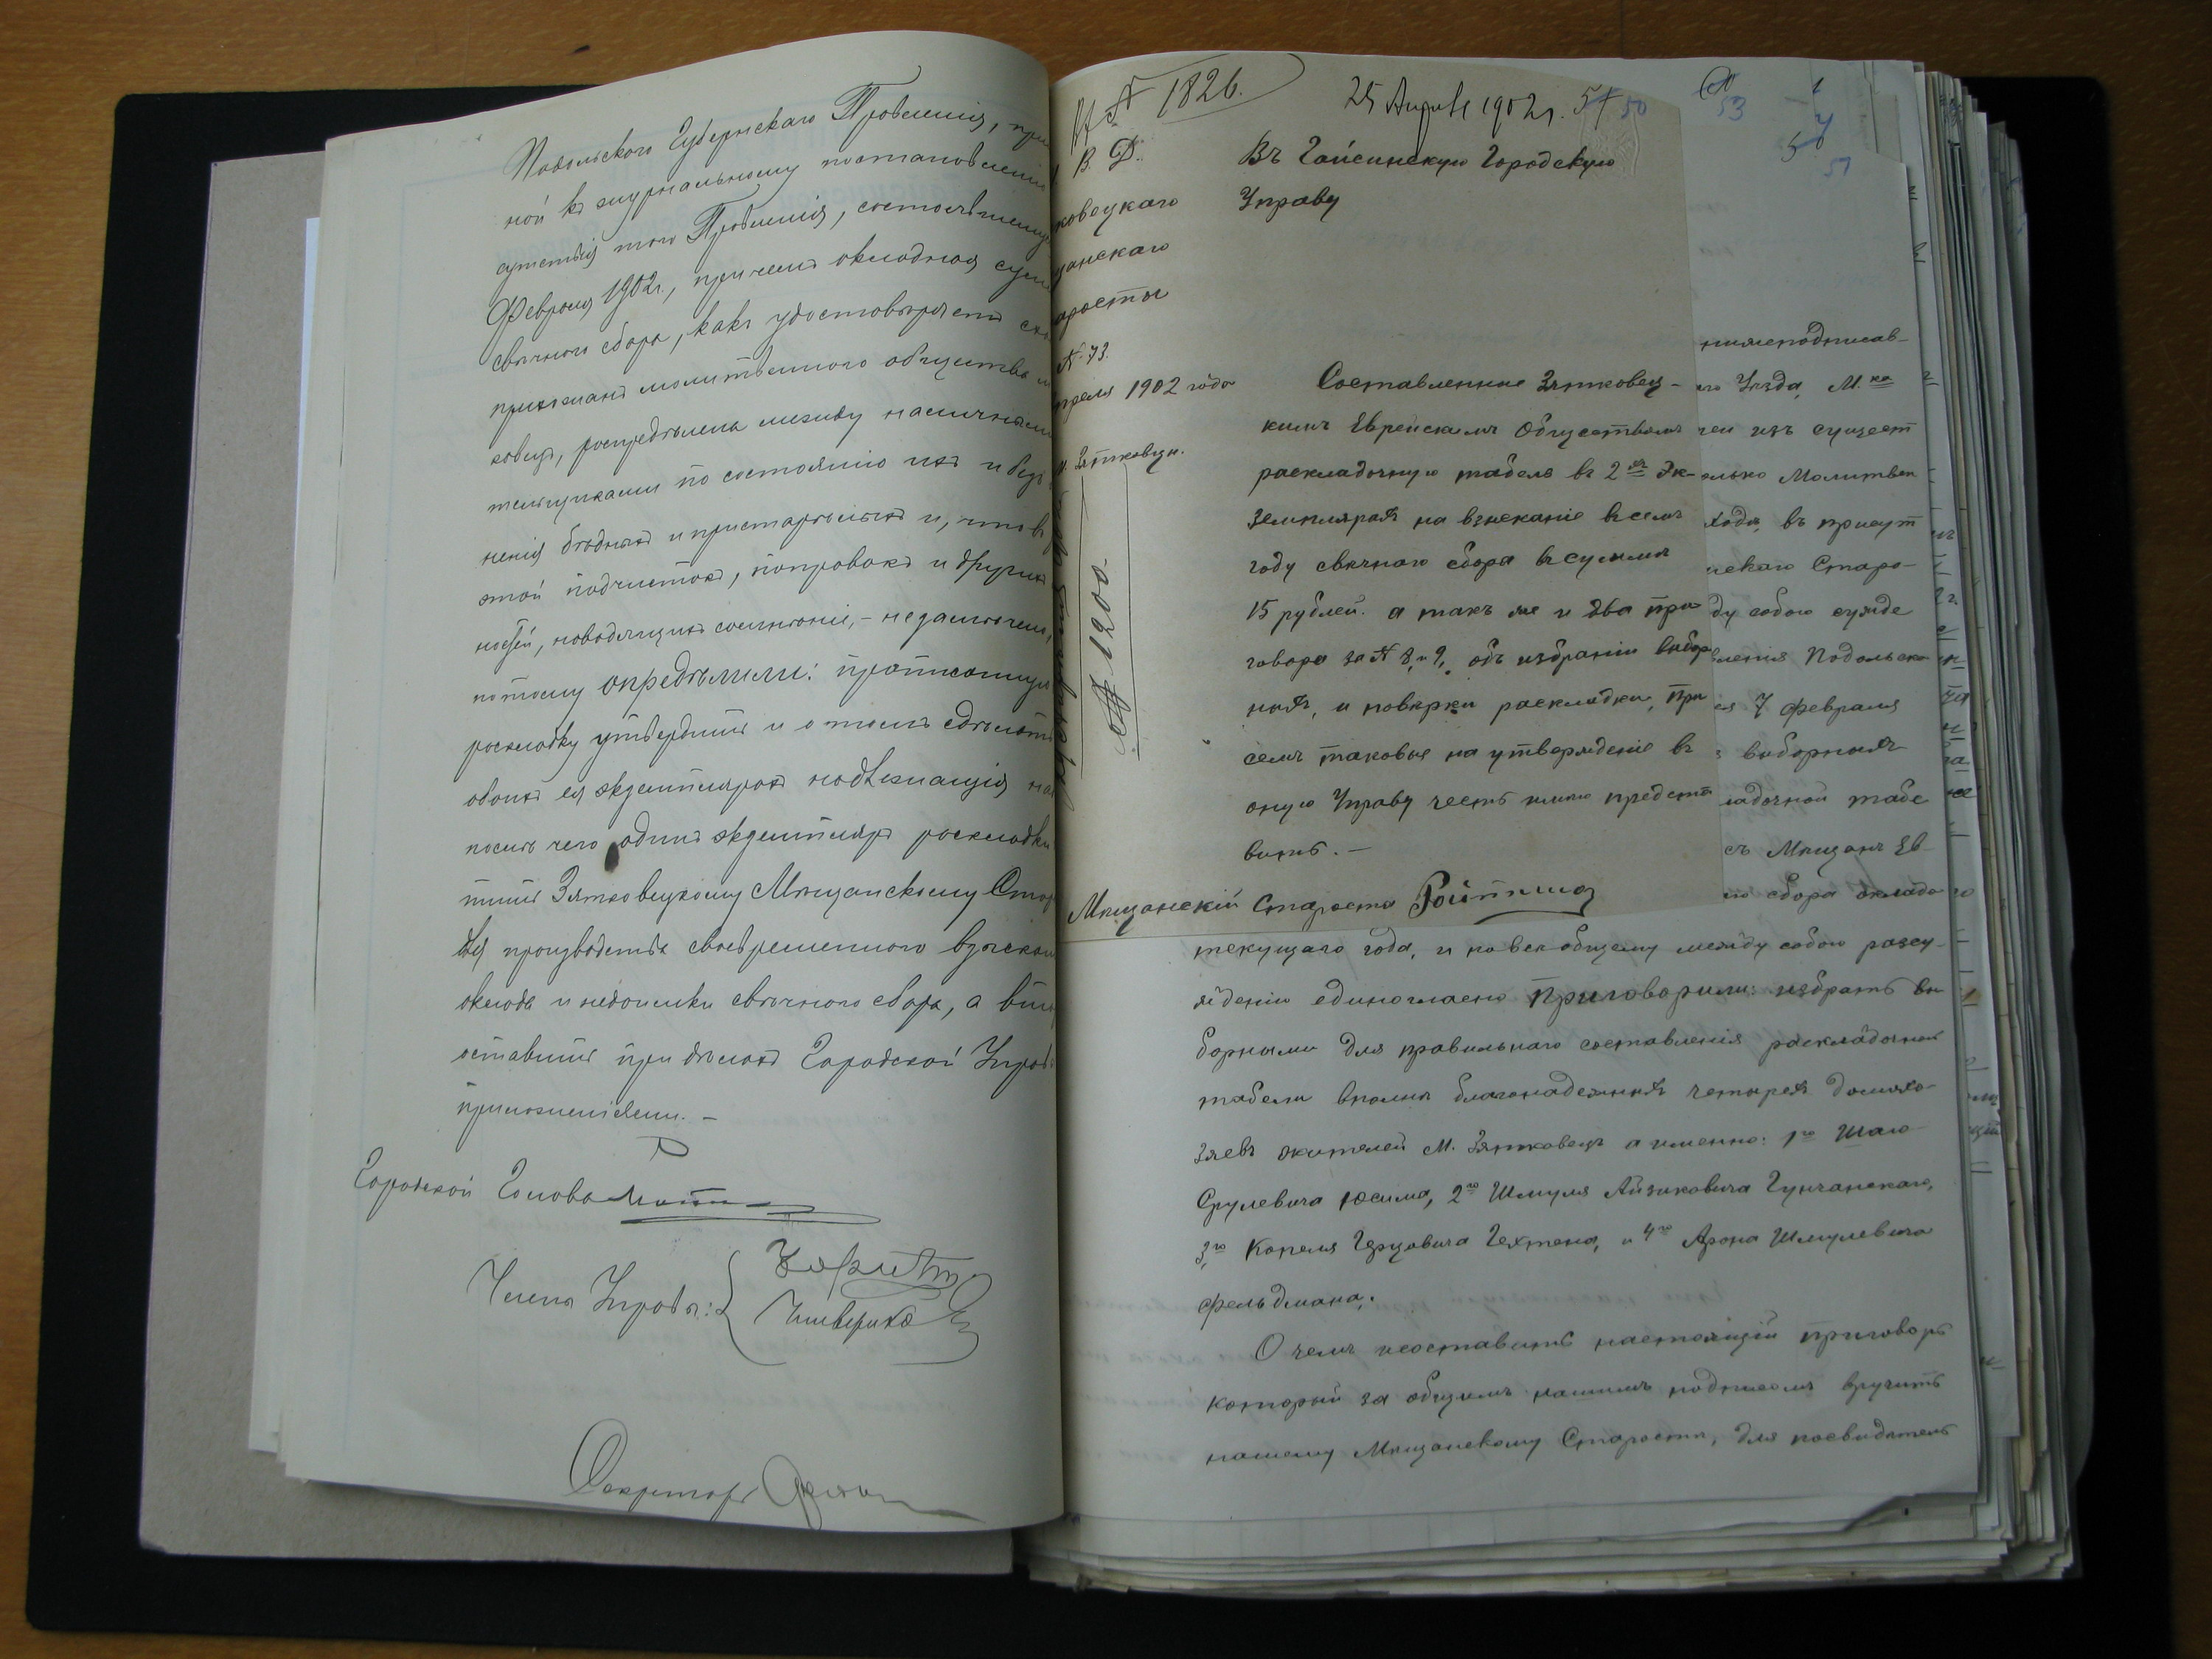 Подольскаго Губернскаго Правленія, при
ной къ журнальному постановленію
сутствія того Правленія, состоявшемуся
Февраля 1902г., причемъ окладная сум
свѣчного сбора, какъ удостовѣряетъ
прихожанъ молитвеннаго общества
ковца, распредѣлена между наличными
тельщиками по состоянію ихъ и безъ
ненія бѣдныхъ и пристарѣлыхъ и, что въ
этой подчистокъ, поправокъ и другихъ
ностей, наводящихъ сомнѣніе, – не замѣчено,
потому опредѣлили: прописанную
раскладку утвердить и о томъ сдѣлать
обоихъ ея экземплярахъ надлежащія на
послѣ чего одинъ экземпляръ раскладки
тить Зятковецкому Мѣщанскому Стар
для производства своевременнаго взыскан
оклада и недоимки свѣчного сбора, а вто
оставить при дѣлахъ Городской Управ
приложеніями. –
Городской Голова
Члены Управы:
Секретарь
№ 1826.
25 Апрѣля 1902г. 51 50
53
50
51
В. Д.
ковецкаго
щанскаго
аросты
№ 73.
преля 1902 года
м. Зятковцы.
№ 1200
Въ Гайсинскую Городскую
Управу
Составленные Зятковец-
кимъ Еврейскимъ Обществомъ
раскладочную табель въ 2хъ Эк-
земплярахъ на взысканіе всемъ
году свѣчнаго сбора всуммѣ
15 рублей. а такъ же и два при
говора за № 8, и 9, объ избраніи выбор
ныхъ, и повѣрки раскладки, При
семъ таковые на утвержденіе въ
оную Управу честь имѣю предста
вить. –
Мѣщанскій Староста Ройтманъ
нижеподписав-
го Уѣзда, М.ка
чеи изъ сущест
олько Молитвен
хода, въ присут
нскаго Старо-
ду собою сужде
вленія Подольско
ея 7 февраля
выборныхъ
ладочной табе
съ Мѣщанъ Ев
го сбора оклада
текущаго года, и повсеобщему между собою разсу-
жденію единогласно Приговорили: избрать вы
борными для правильнаго составленія раскладочной
табели вполнѣ благонадежныхъ четырехъ домохо-
зяевъ жителей М. Зятковецъ а именно: 1го Шаю
Срулевича Юсима, 2го Шмуля Айзиковича Гунчанскаго,
3го Копеля Герцовича Гехтена, и 4го Арона Шмулевича
Фельдмана,.
О чемъ исоставить настоящій приговоръ
который за общимъ нашимъ подписомъ вручить
нашему Мѣщанскому Старостѣ, для посвидѣтель